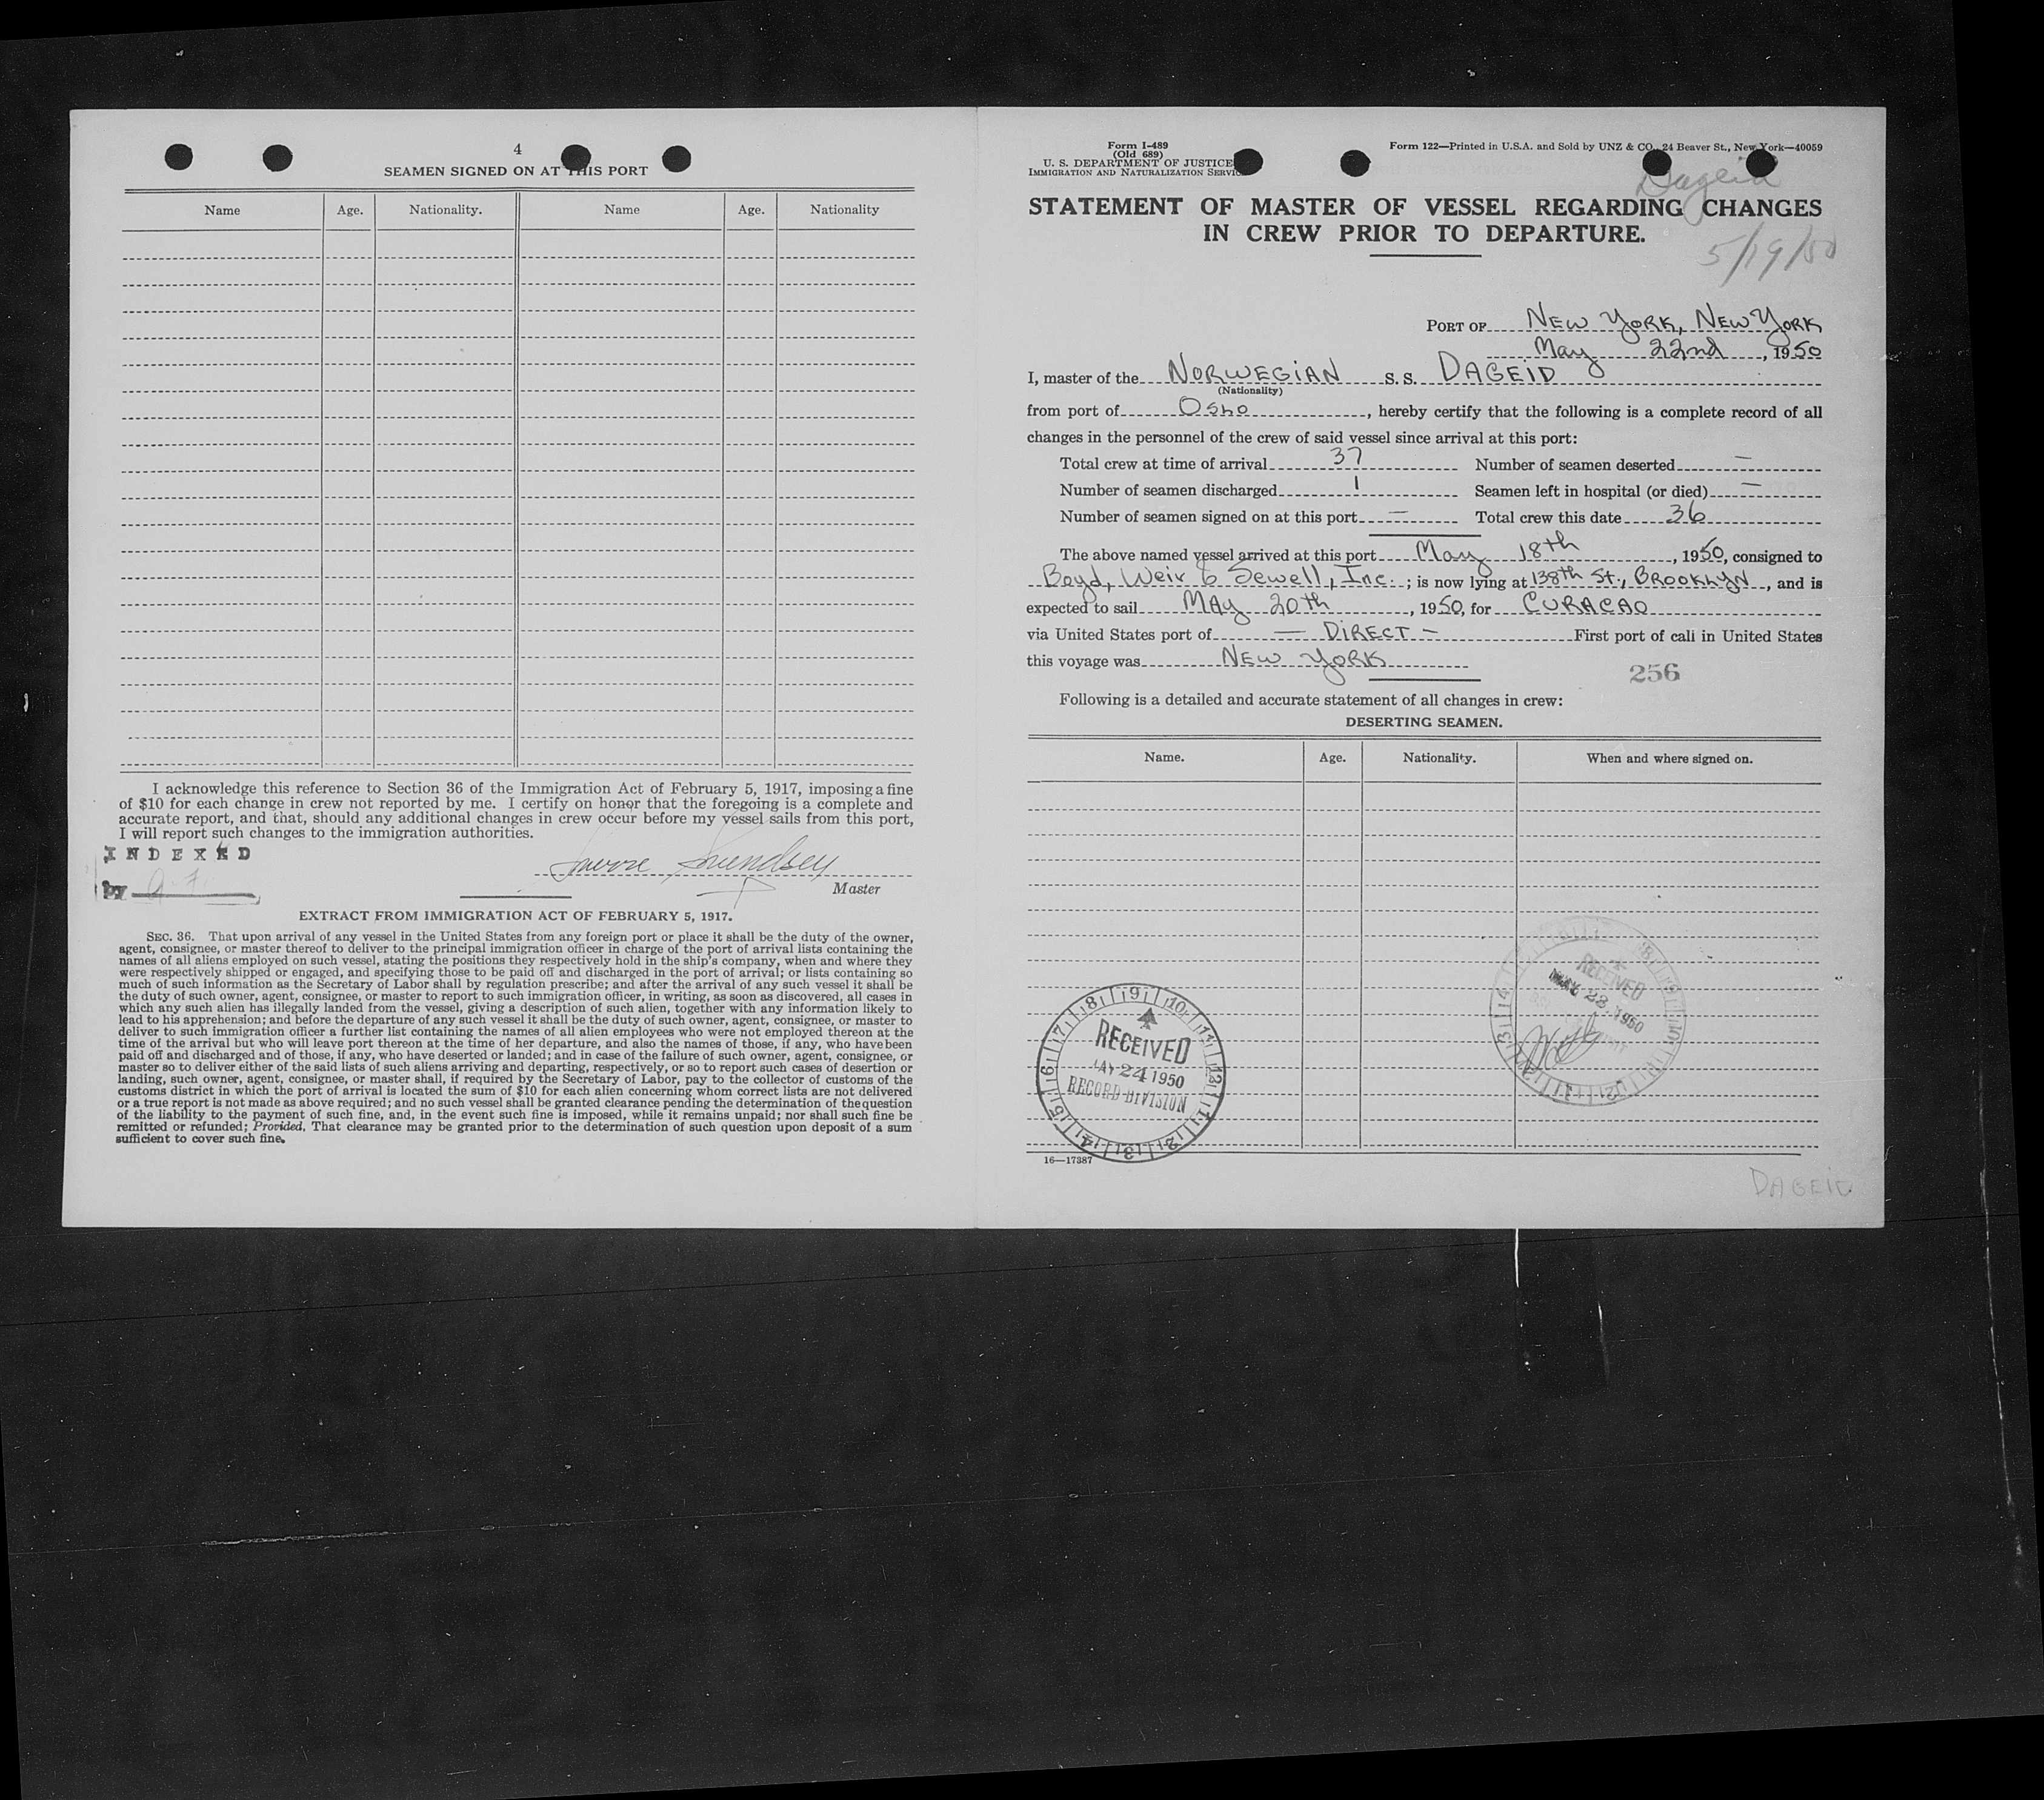 4
SEAMEN SIGNED ON AT THIS PORT
Name Age. Nationality. Name Age. Nationality
I acknowledge this reference to Section 36 of the Immigration Act of February 5, 1917, imposing a fine
of $10 for each change in crew not reported by me. I certify on honor that the foregoing is a complete and
accurate report, and that, should any additional changes in crew occur before my vessel sails from this port,
I will report such changes to the immigration authorities.
INDEXED
by
Master
EXTRACT FROM IMMIGRATION ACT OF FEBRUARY 5, 1917.
SEC. 36. That upon arrival of any vessel in the United States from any foreign port or place it shall be the duty of the owner,
agent, consignee, or master thereof to deliver to the principal immigration officer in charge of the port of arrival lists containing the
names of all aliens employed on such vessel, stating the positions they respectively hold in the ship's company, when and where they
were respectively shipped or engaged, and specifying those to be paid off and discharged in the port of arrival; or lists containing so
much of such information as the Secretary of Labor shall by regulation prescribe; and after the arrival of any such vessel it shall be
the duty of such owner, agent, consignee, or master to report to such immigration officer, in writing, as soon as discovered, all cases in
which any such alien has illegally landed from the vessel, giving a description of such alien, together with any information likely to
lead to his apprehension; and before the departure of any such vessel it shall be the duty of such owner, agent, consignee, or master to
deliver to such immigration officer a further list containing the names of all alien employees who were not employed thereon at the
time of the arrival but who will leave port thereon at the time of her departure, and also the names of those, if any, who have been
paid off and discharged and of those, if any, who have deserted or landed; and in case of the failure of such owner, agent, consignee, or
master so to deliver either of the said lists of such aliens arriving and departing, respectively, or so to report such cases of desertion or
landing, such owner, agent, consignee, or master shall, if required by the Secretary of Labor, pay to the collector of customs of the
customs district in which the port of arrival is located the sum of $10 for each alien concerning whom correct lists are not delivered
or a true report is not made as above required; and no such vessel shall be granted clearance pending the determination of the question
of the liability to the payment of such fine, and, in the event such fine is imposed, while it remains unpaid; nor shall such fine be
remitted or refunded; Provided, That clearance may be granted prior to the determination of such question upon deposit of a sum
sufficient to cover such fine.
Form I-489
(Old 689)
U. S. DEPARTMENT OF JUSTICE
IMMIGRATION AND NATURALIZATION SERVICE
Form 122—Printed in U.S.A. and Sold by UNZ & CO., 24 Beaver St., New York—40059
Dageid
STATEMENT OF MASTER OF VESSEL REGARDING CHANGES
IN CREW PRIOR TO DEPARTURE.
5/19/50
PORT OF NEW YORK, NEW YORK
May 22nd, 1950
I, master of the NORWEGIAN S. S. DAGEID
(Nationality)
from port of OSLO, hereby certify that the following is a complete record of all
changes in the personnel of the crew of said vessel since arrival at this port:
Total crew at time of arrival 37 Number of seamen deserted —
Number of seamen discharged 1 Seamen left in hospital (or died) —
Number of seamen signed on at this port — Total crew this date 36
The above named vessel arrived at this port May 18th, 1950, consigned to
Boyd, Weir & Sewell, Inc.; is now lying at 138th St., BROOKLYN, and is
expected to sail MAY 20th, 1950, for CURACAO
via United States port of — DIRECT — First port of call in United States
this voyage was NEW YORK
256
Following is a detailed and accurate statement of all changes in crew:
DESERTING SEAMEN.
Name. Age. Nationality. When and where signed on.
RECEIVED
MAY 23 1950
RECEIVED
MAY 24 1950
RECORD DIVISION
16—17387
DAGEID